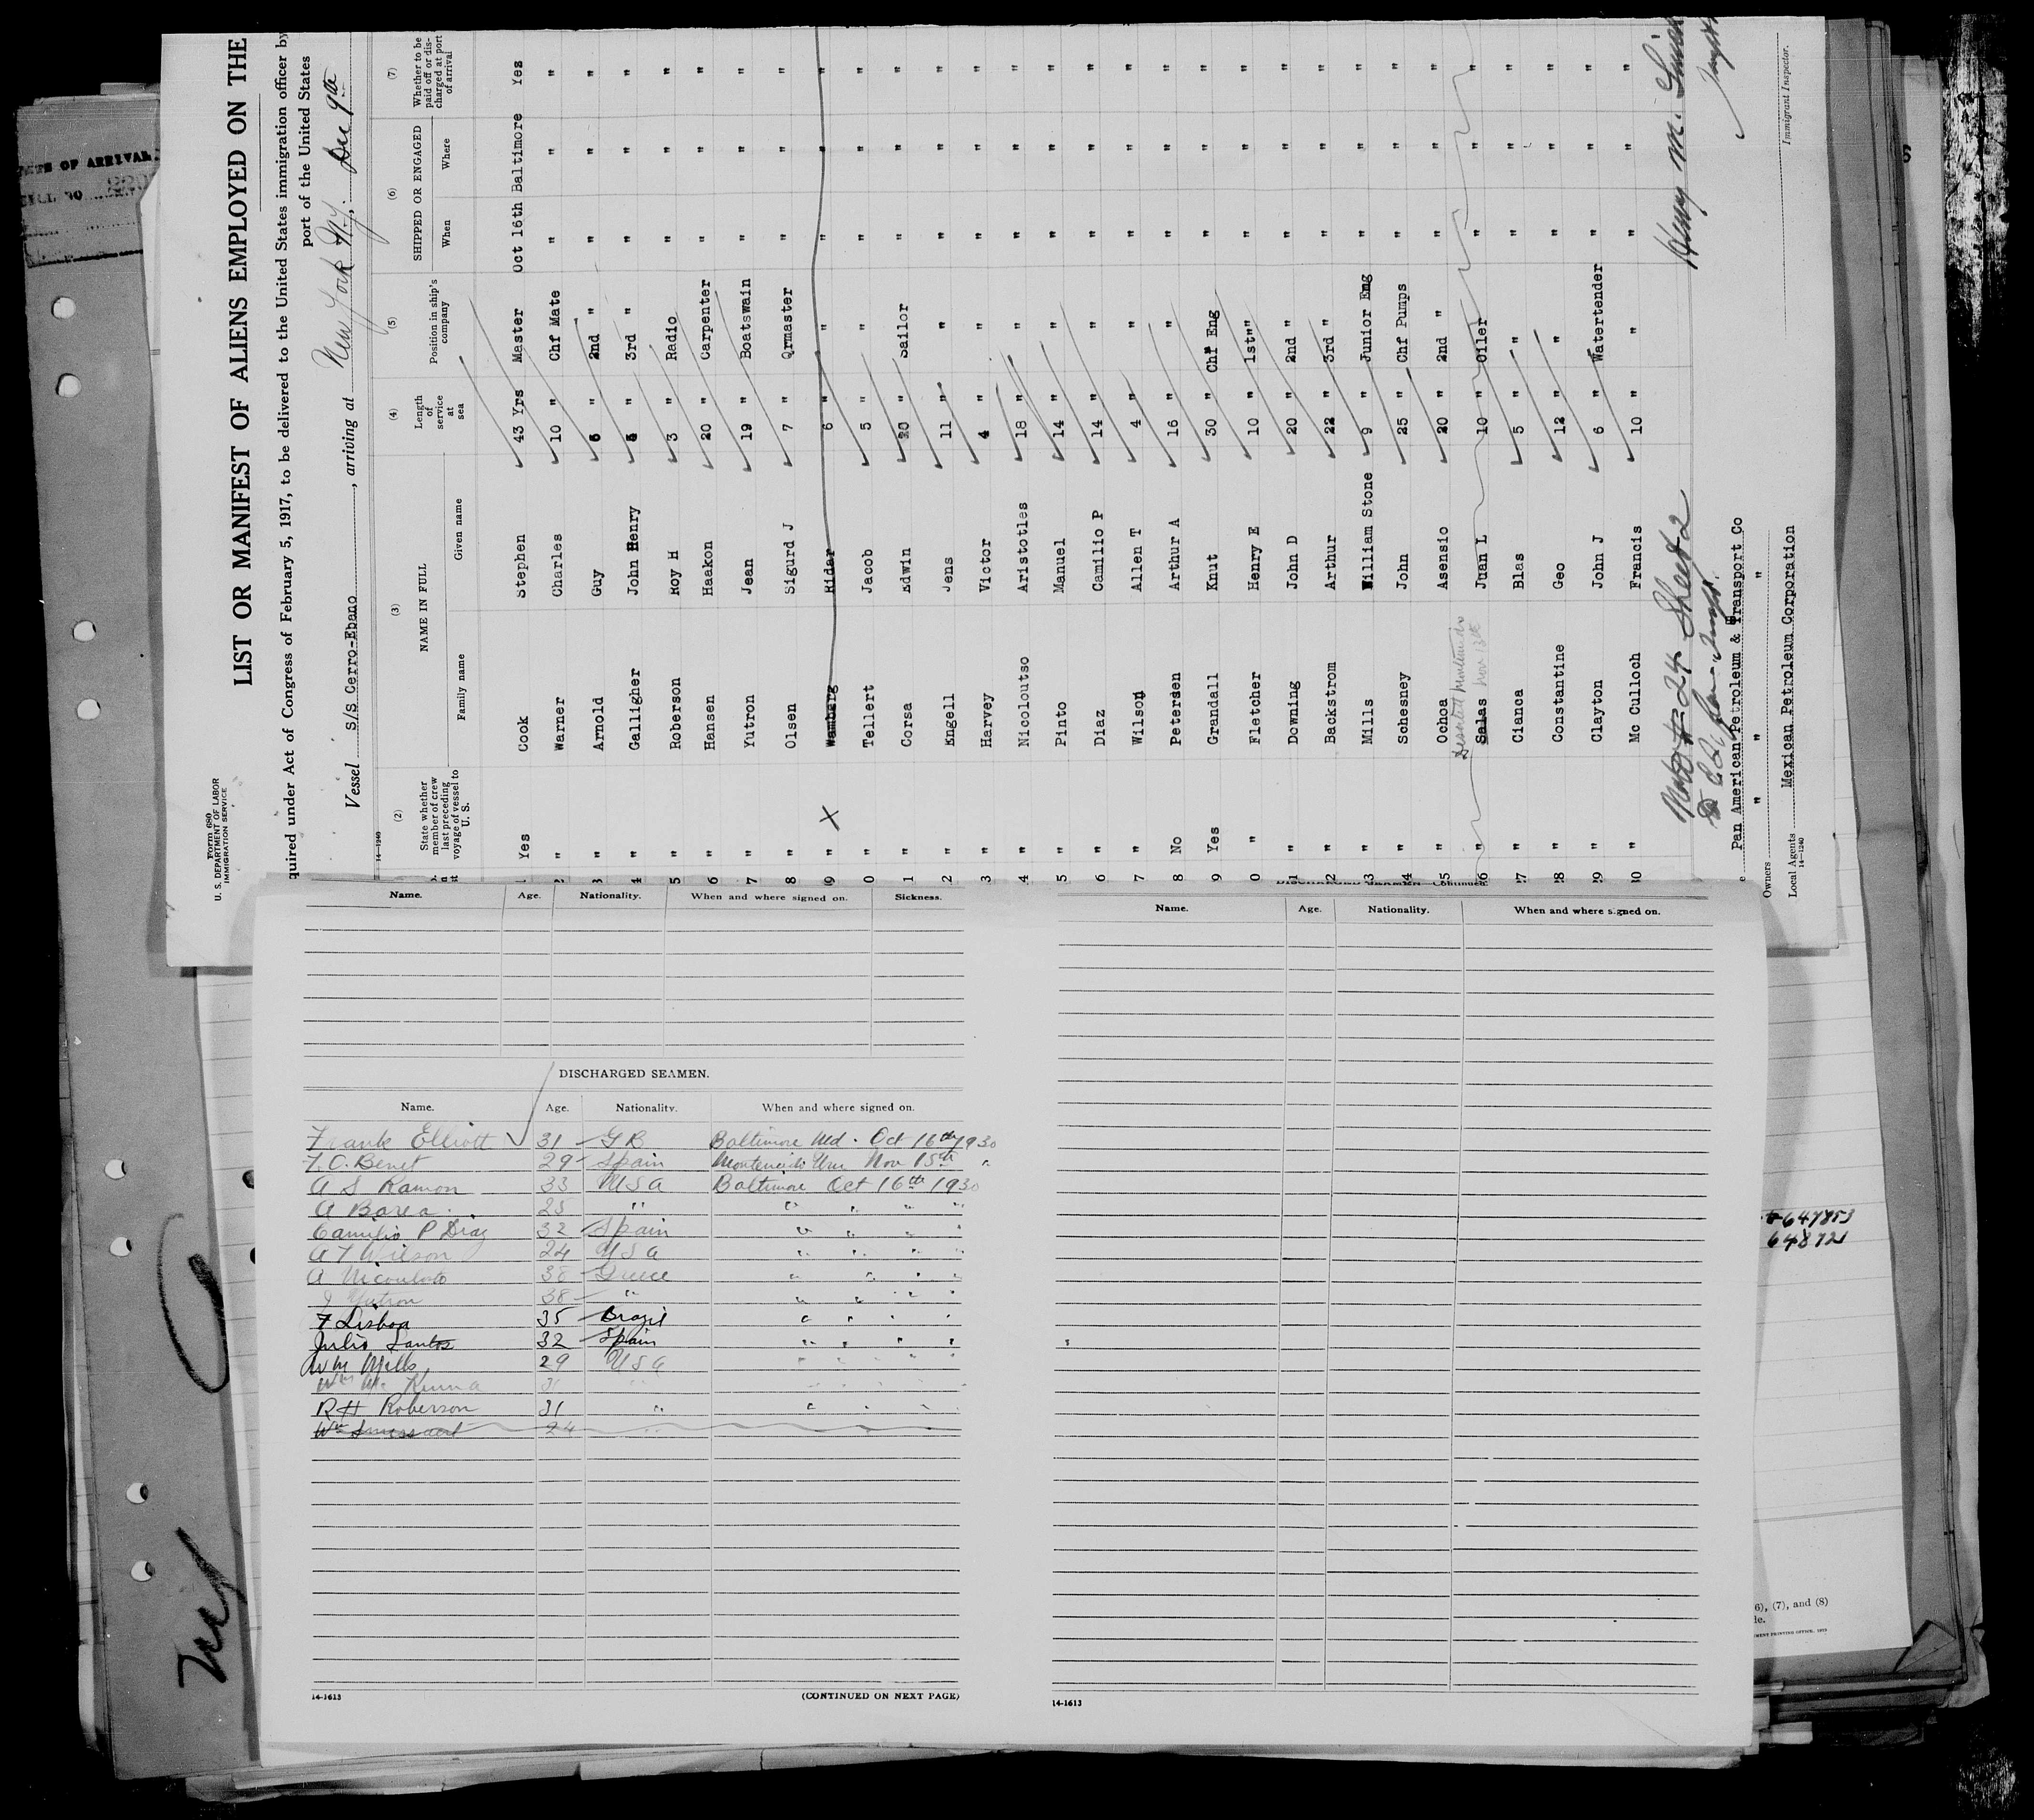 Form 680
U. S. DEPARTMENT OF LABOR
IMMIGRATION SERVICE
LIST OR MANIFEST OF ALIENS EMPLOYED ON THE
quired under Act of Congress of February 5, 1917, to be delivered to the United States immigration officer by
port of the United States
Vessel S/S Cerro-Ebano, arriving at New York N.Y. Dec 9th
14-1240
(2) (3) (4) (5) (6) (7)
State whether member of crew last preceding voyage of vessel to U. S.
NAME IN FULL
Family name Given name
Length of service at sea
Position in ship's company
SHIPPED OR ENGAGED
When Where
Whether to be paid off or discharged at port of arrival
Yes Cook Stephen 43 Yrs Master Oct 16th Baltimore Yes
" Warner Charles 10 " Chf Mate " " "
3 " Arnold Guy 6 " 2nd " " " "
4 " Galligher John Henry 5 " 3rd " " " "
5 " Roberson Roy H 3 " Radio " " "
6 " Hansen Haakon 20 " Carpenter " " "
7 " Yutron Jean 19 " Boatswain " " "
8 " Olsen Sigurd J 7 " Qrmaster " " "
9 " X Wamberg Hidar 6 " " " " "
0 " Tellert Jacob 5 " " " " "
1 " Corsa Edwin 20 " Sailor " " "
2 " Engell Jens 11 " " " " "
3 " Harvey Victor 4 " " " " "
4 " Nicoloutso Aristotles 18 " " " " "
5 " Pinto Manuel 14 " " " " "
6 " Diaz Camilio P 14 " " " " "
7 " Wilson Allen T 4 " " " " "
8 No Petersen Arthur A 16 " " " " "
9 Yes Grandall Knut 30 " Chf Eng " " "
0 " Fletcher Henry E 10 " 1st"" " " "
1 " Downing John D 20 " 2nd " " " "
2 " Backstrom Arthur 22 " 3rd " " " "
3 " Mills William Stone 9 " Junior Eng " " "
4 " Schesney John 25 " Chf Pumps " " "
5 " Ochoa Asensio 20 " 2nd " " " "
Deserted Montevideo Nov 13th
6 " Salas Juan L 10 " Oiler " " "
7 " Cianca Blas 5 " " " " "
8 " Constantine Geo 12 " " " " "
9 " Clayton John J 6 " Watertender " " "
0 " Mc Culloch Francis 10 " " " " "
# 24 Sheet 2
Henry M.
Pan American Petroleum & Transport Co
Owners " " "
Local Agents Mexican Petroleum Corporation
14-1240
Immigrant Inspector.
Name. Age. Nationality. When and where signed on. Sickness.
DISCHARGED SEAMEN.
Name. Age. Nationality. When and where signed on.
Frank Elliott 31 GB Baltimore Md. Oct 16th 1930
F. C. Benet 29 Spain Montevideo Uru Nov 15th "
A S Ramon 33 USA Baltimore Oct 16th 1930
A Barea 25 " " " " "
Camilio P Diaz 32 Spain " " " "
A T Wilson 24 USA " " " "
A Nicouloto 38 Greece " " " "
J Yutron 38 " " " " "
F Lisboa 35 Brazil " " " "
Julio Santos 32 Spain " " " "
Wm Mills 29 USA " " " "
Wm Mc Kenna 31 " " " " "
R H Roberson 31 " " " " "
Wm 24 "
14-1613 (CONTINUED ON NEXT PAGE)
DISCHARGED SEAMEN—Continued.
Name. Age. Nationality. When and where signed on.
14-1613
OF ARRIVAL
647853
648721
6), (7), and (8)